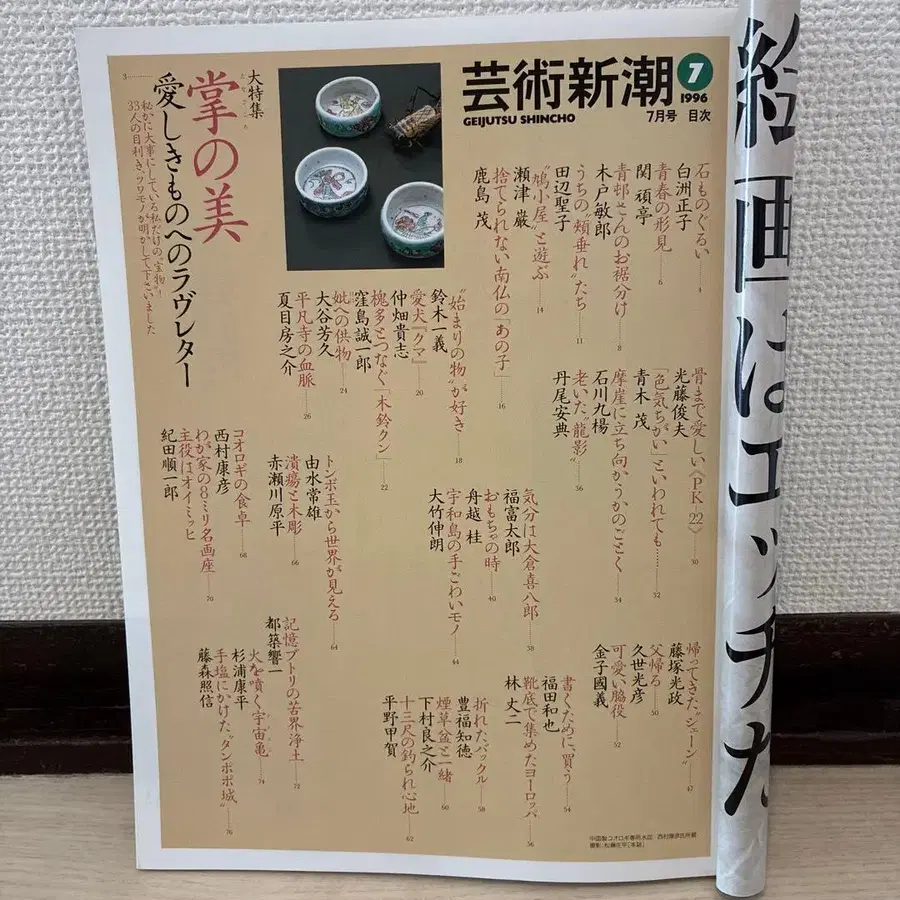 芸術新潮
GEIJUTSU SHINCHO
7
1996
7月号 目次
大特集
掌の美
たなごころ
愛しきものへのラヴレター
秘かに大事にしている私だけの“宝物”!
33人の目利き、ツワモノが明かして下さいました
3
石ものぐるい 4
白洲正子
青春の形見 6
関 頑亭
青邨さんのお裾分け 8
木戸敏郎
うちの“頬垂れ”たち 11
田辺聖子
“鳩小屋”と遊ぶ 14
瀬津 巌
捨てられない南仏の「あの子」 16
鹿島 茂
“始まりの物”が好き 18
鈴木一義
愛犬『クマ』 20
仲畑貴志
槐多とつなぐ「木鈴クン」 22
窪島誠一郎
妣への供物 24
大谷芳久
平凡寺の血脈 26
夏目房之介
骨まで愛しい〈PK-22〉 30
光藤俊夫
「色気ちがい」といわれても…… 32
青木 茂
摩崖に立ち向かうかのごとく 34
石川九楊
老いた“龍影” 36
丹尾安典
気分は大倉喜八郎 38
福富太郎
おもちゃの時 40
舟越 桂
宇和島の手ごわいモノ 44
大竹伸朗
帰ってきた“ジェーン” 47
藤塚光政
父帰る 50
久世光彦
可愛い脇役 52
金子國義
書くために、買う 54
福田和也
靴底で集めたヨーロッパ 56
林 丈二
折れたバックル 58
豊福知徳
煙草盆と一緒 60
下村良之介
十三尺の釣られ心地 62
平野甲賀
トンボ玉から世界が見える 64
由水常雄
潰瘍と木彫 66
赤瀬川原平
コオロギの食卓 68
西村康彦
わが家の8ミリ名画座 70
主役はオイミッヒ
紀田順一郎
記憶ブトリの苦界浄土 72
都築響一
火を噴く宇宙亀 74
杉浦康平
手塩にかけた“タンポポ城” 76
藤森照信
中国製コオロギ専用水皿 西村康彦氏所蔵
撮影:松藤庄平[本誌]
絵画はエッチな